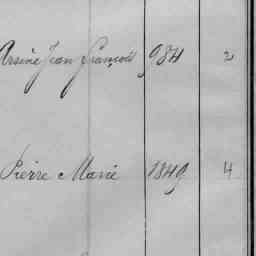 Arsène Jean François 984 2
Pierre Marie 1849 4